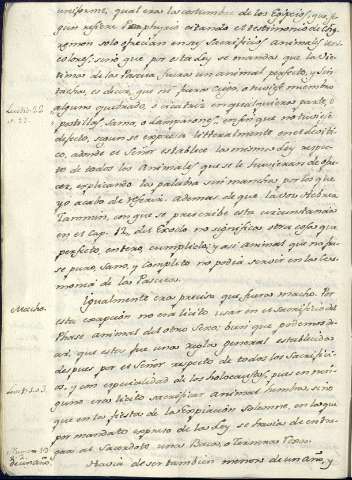 uniforme, qual era la costumbre de los Egipcios, que, se-
gun refiere Porphyrio citando el testimonio de Che-
remon solo ofrecian en sus Sacrificios animales de
colores, sino que por esta Ley se mandaba que la Vic-
tima de la Pascua fuera un animal perfecto, y sin
tacha, es decir, que no fuera cojo, o tuviese miembro
alguno quebrado, o cicatriz en qualquiera parte, o
postillas, sarna, o lamparones, en fin que no tuviese
defecto, segun se expresa litteralmente en el Leviti-
co, adonde el Señor establece la misma Ley respec-
to de todos los Animales que se le huvieran de ofre-
cer, explicando las palabras sin mancha por los que
yo acabo de referir. Ademas de que la voz Hebrea
Tammin, con que se prescribe esta circunstancia
en el Cap. 12. del Exodo no significa otra cosa que
perfecto, entero, cumplido; y asi animal que no fue-
se puro, sano, y completo no podia servir en la Cere-
monia de la Pascua.
Levit. 22
Macho.
Igualmente era preciso que fuera macho. Por
esta excepcion no era licito usar en el Sacrificio del
Phase animal del otro Sexo; bien que podemos de-
cir, que esta fue una regla general establecida
despues por el Señor respecto de todos los Sacrifi-
cios, y con especialidad de los holocaustos, pues en nin-
guno era licito sacrificar animal hembra, sino
que en la fiesta de la Expiacion Solemne, en la que
por mandato expreso de la Ley se havia de entre-
gar al Sacerdote una Baca, o Ternera Roxa.
Levit. 1. 3.
de un año.
Havia de ser tambien menor de un año, y